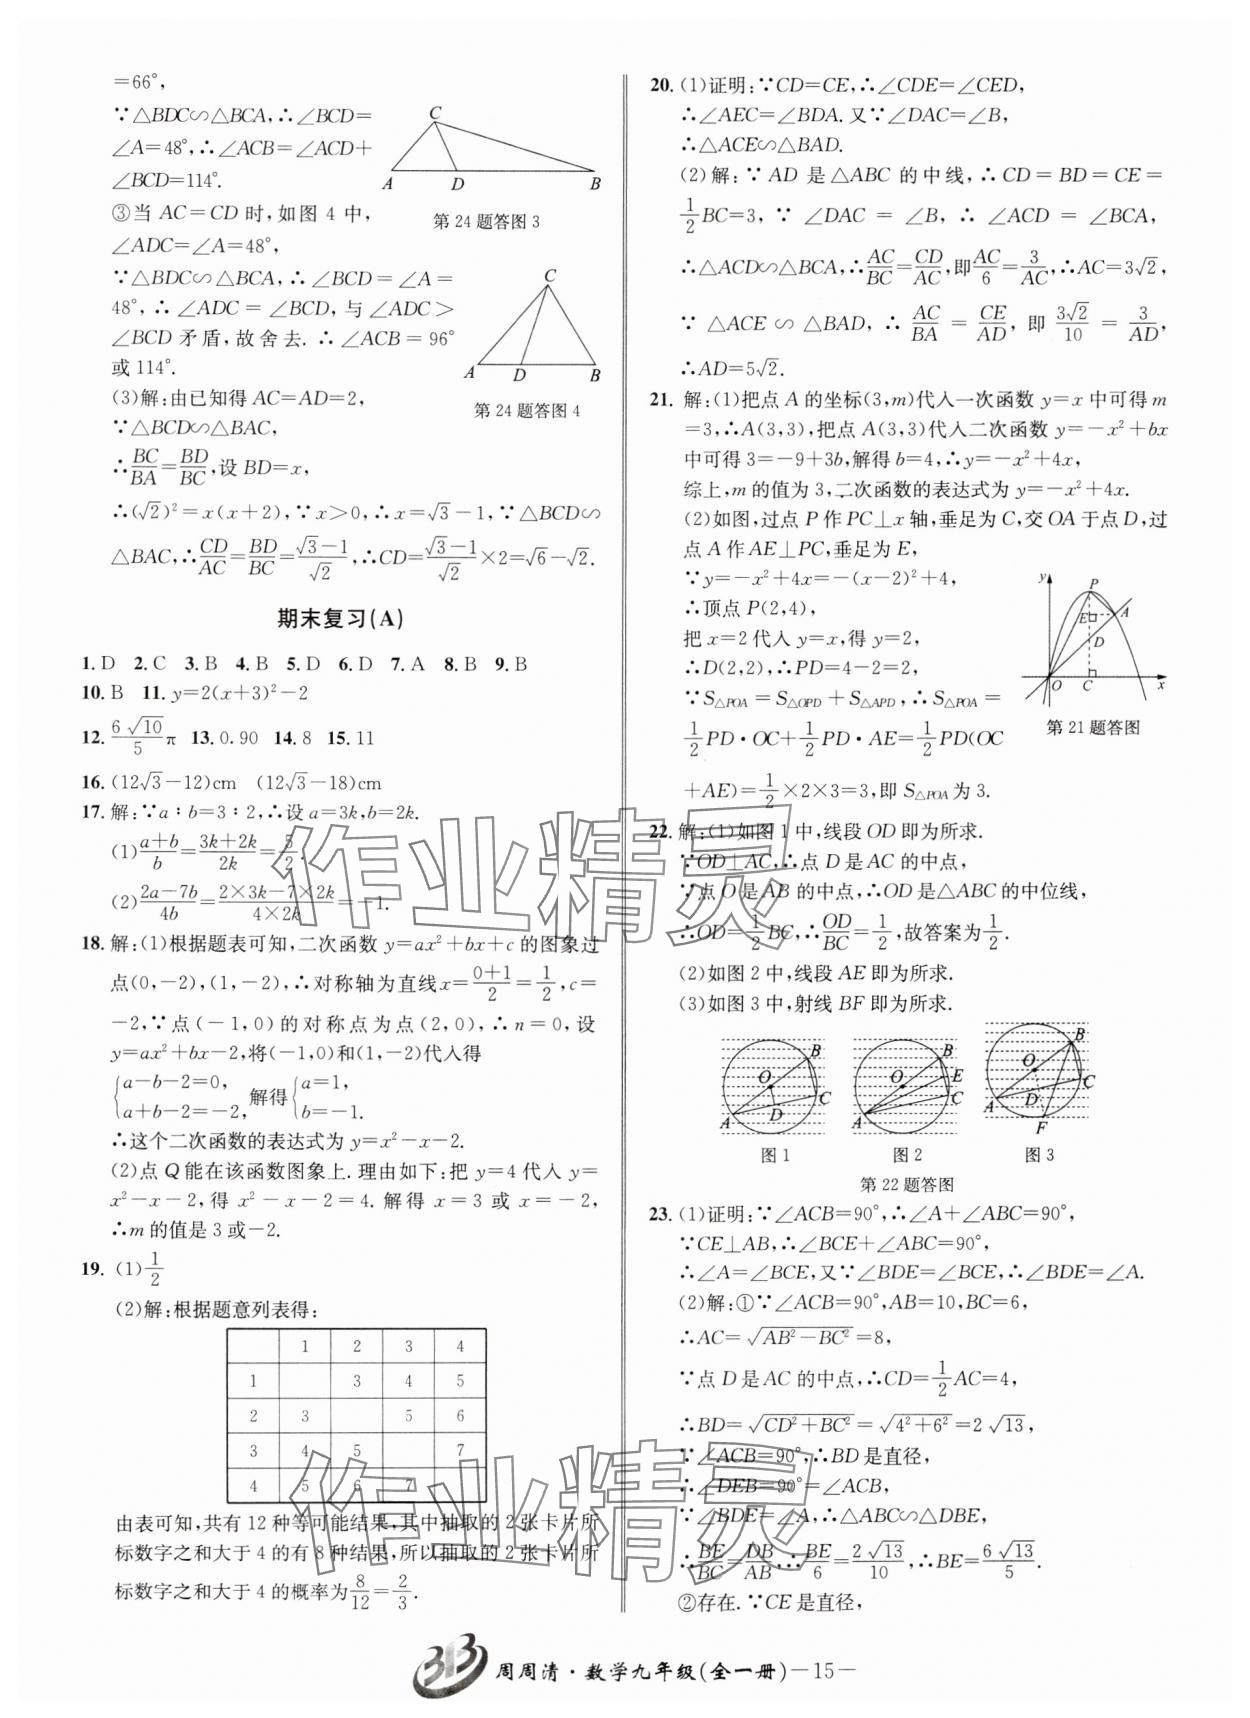 =66°,
∵△BDC∽△BCA,∴∠BCD=
∠A=48°,∴∠ACB=∠ACD+
∠BCD=114°.
C
A D B
第24题答图3
③当 AC=CD 时,如图 4 中,
∠ADC=∠A=48°,
∵△BDC∽△BCA,∴∠BCD=∠A=
48°,∴∠ADC=∠BCD,与∠ADC>
∠BCD 矛盾,故舍去.∴∠ACB=96°
或114°.
C
A D B
第24题答图4
(3)解:由已知得 AC=AD=2,
∵△BCD∽△BAC,
∴BC/BA=BD/BC,设 BD=x,
∴(√2)²=x(x+2),∵x>0,∴x=√3-1,∵△BCD∽
△BAC,∴CD/AC=BD/BC=(√3-1)/√2,∴CD=(√3-1)/√2×2=√6-√2.
期末复习(A)
1.D 2.C 3.B 4.B 5.D 6.D 7.A 8.B 9.B
10.B 11.y=2(x+3)²-2
12.6√10/5π 13.0.90 14.8 15.11
16.(12√3-12)cm (12√3-18)cm
17.解:∵a∶b=3∶2,∴设 a=3k,b=2k.
(1)(a+b)/b=(3k+2k)/2k=5/2.
(2)(2a-7b)/4b=(2×3k-7×2k)/(4×2k)=-1.
18.解:(1)根据题表可知,二次函数 y=ax²+bx+c 的图象过
点(0,-2),(1,-2),∴对称轴为直线x=(0+1)/2=1/2,c=
-2,∵点(-1,0)的对称点为点(2,0),∴n=0,设
y=ax²+bx-2,将(-1,0)和(1,-2)代入得
{a-b-2=0, a+b-2=-2, 解得{a=1, b=-1.
∴这个二次函数的表达式为 y=x²-x-2.
(2)点 Q 能在该函数图象上.理由如下:把 y=4 代入 y=
x²-x-2,得 x²-x-2=4.解得 x=3 或 x=-2,
∴m 的值是 3 或-2.
19.(1)1/2
(2)解:根据题意列表得:
1 2 3 4
1 3 4 5
2 3 5 6
3 4 5 7
4 5 6 7
由表可知,共有 12 种等可能结果,其中抽取的 2 张卡片所
标数字之和大于 4 的有 8 种结果,所以抽取的 2 张卡片所
标数字之和大于 4 的概率为8/12=2/3.
20.(1)证明:∵CD=CE,∴∠CDE=∠CED,
∴∠AEC=∠BDA.又∵∠DAC=∠B,
∴△ACE∽△BAD.
(2)解:∵AD 是△ABC 的中线,∴CD=BD=CE=
1/2BC=3,∵∠DAC=∠B,∴∠ACD=∠BCA,
∴△ACD∽△BCA,∴AC/BC=CD/AC,即AC/6=3/AC,∴AC=3√2,
∵△ACE∽△BAD,∴AC/BA=CE/AD,即3√2/10=3/AD,
∴AD=5√2.
21.解:(1)把点 A 的坐标(3,m)代入一次函数 y=x 中可得 m
=3,∴A(3,3),把点 A(3,3)代入二次函数 y=-x²+bx
中可得 3=-9+3b,解得 b=4,∴y=-x²+4x,
综上,m 的值为 3,二次函数的表达式为 y=-x²+4x.
(2)如图,过点 P 作 PC⊥x 轴,垂足为 C,交 OA 于点 D,过
点 A 作 AE⊥PC,垂足为 E,
∵y=-x²+4x=-(x-2)²+4,
∴顶点 P(2,4),
把 x=2 代入 y=x,得 y=2,
∴D(2,2),∴PD=4-2=2,
∵S△POA=S△OPD+S△APD,∴S△POA=
1/2PD·OC+1/2PD·AE=1/2PD(OC
+AE)=1/2×2×3=3,即 S△POA为 3.
y P
A
E
D
O C x
第21题答图
22.解:(1)如图1中,线段 OD 即为所求.
∵OD⊥AC,∴点 D 是 AC 的中点,
∵点 O 是 AB 的中点,∴OD 是△ABC 的中位线,
∴OD=1/2BC,∴OD/BC=1/2,故答案为1/2.
(2)如图 2 中,线段 AE 即为所求.
(3)如图 3 中,射线 BF 即为所求.
B O C D A
B O E C A
B O C D A F
图1 图2 图3
第22题答图
23.(1)证明:∵∠ACB=90°,∴∠A+∠ABC=90°,
∵CE⊥AB,∴∠BCE+∠ABC=90°,
∴∠A=∠BCE,又∵∠BDE=∠BCE,∴∠BDE=∠A.
(2)解:①∵∠ACB=90°,AB=10,BC=6,
∴AC=√(AB²-BC²)=8,
∵点 D 是 AC 的中点,∴CD=1/2AC=4,
∴BD=√(CD²+BC²)=√(4²+6²)=2√13,
∵∠ACB=90°,∴BD 是直径,
∴∠DEB=90°=∠ACB,
∵∠BDE=∠A,∴△ABC∽△DBE,
∴BE/BC=DB/AB,∴BE/6=2√13/10,∴BE=6√13/5.
②存在.∵CE 是直径,
作业精灵
作业精灵
313 周周清·数学九年级(全一册)-15-